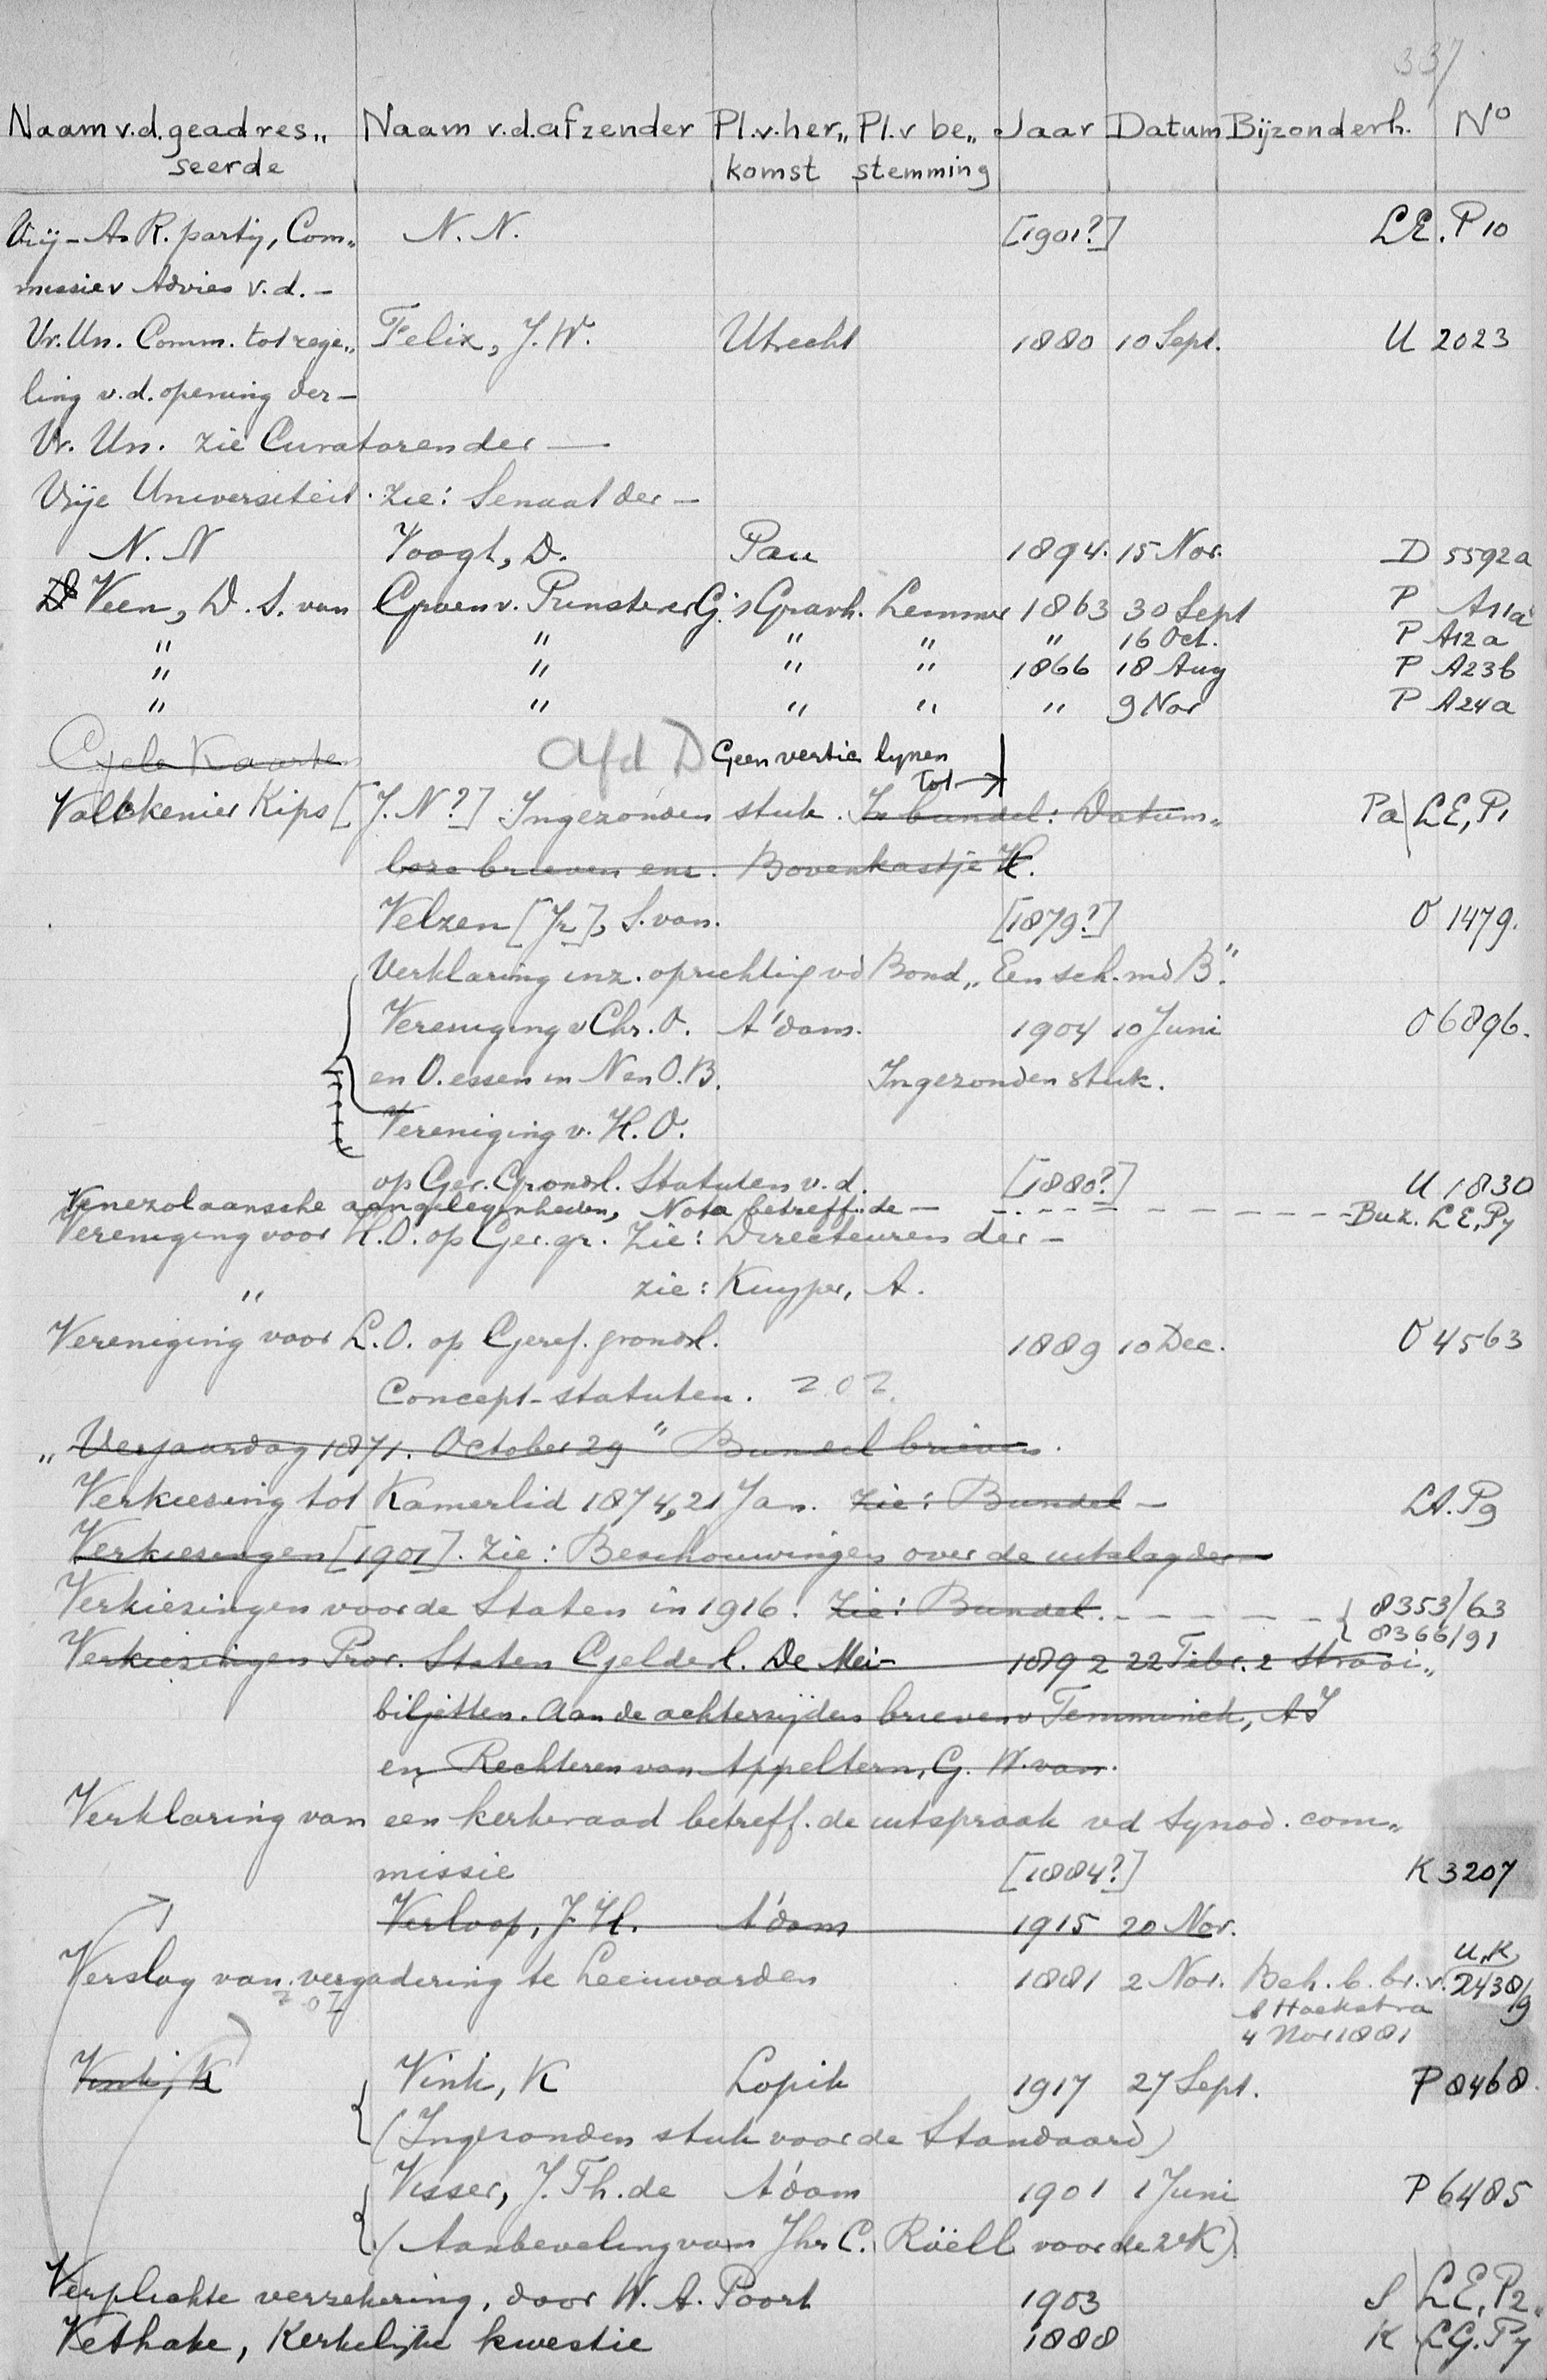 337
Naam v.d. geadres„ Naam v.d. afzender Pl.v.her„ Pl.v be„ Jaar Datum Bijzonderh. No
seerde komst stemming
Vrij-A. R. partij, Com„ N. N. [1901?] LE. P10
missie v Advies v.d. —
Vr. Un. Comm. tot rege„ Felix, J. W. Utrecht 1880 10 Sept. U 2023
ling v.d. opening der —
Vr. Un. zie Curatoren der —
Vrije Universiteit. Zie: Senaat der —
N. N Voogt, D. Pau 1894. 15 Nov. D 5592a
Veen, D. S. van Groen v. Prinsterer G. 's Gravh. Lemmer 1863 30 Sept P A11a
" " " " " 16 Oct. P A12a
" " " " 1866 18 Aug P A23b
" " " " " 9 Nov P A24a
Gele Kaarten Afd D Geen vertic lijnen
Tot →
Valckenier Kips [J. N?] Ingezonden stuk. In bundel: Datum„ Pa LE, P1
loze brieven enz. Bovenkastje H.
Velzen [Jr], S. van. [1879?] O 1479.
Verklaring inz. oprichting vd Bond „Een sch. md B".
Vereniging v Chr. O. A'dam. 1904 10 Juni O 6896.
en O.essen in N en O.B. Ingezonden stuk.
Vereniging v. H. O.
op Ger. Grondsl. Statuten v.d. [1880?] U 1830
Venezolaansche aangelegenheden, Nota betreff. de — - - - - Buz. LE, P7
Vereniging voor H.O. op Ger. gr. Zie: Directeuren der —
" zie: Kuyper, A.
Vereniging voor L.O. op Geref. grondsl. 1889 10 Dec. O 4563
Concept-statuten. Z O Z.
„Verjaardag 1871. October 29" Bundel brieven.
Verkiezing tot Kamerlid 1874, 21 Jan. Zie: Bundel — LA. P9
Verkiezingen [1901]. Zie: Beschouwingen over de uitslag der —
Verkiezingen voor de Staten in 1916. Zie: Bundel. - - - - { 8353/63
8366/91
Verkiezingen Prov. Staten Gelderl. De Mei- 1892 22 Febr. 2 strooi„
biljetten. Aan de achterzijden brieven v Temminck, A J
en Rechteren van Appeltern, G. W. van.
Verklaring van een kerkeraad betreff. de uitspraak vd synod. com„
missie [1884?] K 3207
Verloop, J. H. A'dam 1915 20 Nov.
Verslag van vergadering te Leeuwarden 1881 2 Nov. Beh. b. br. v. U.K 2438/9
Z O Z S Hoekstra
4 Nov 1881
Vink, K Vink, K Lopik 1917 27 Sept. P 8468.
(Ingezonden stuk voor de Standaard)
Visser, J. Th. de A'dam 1901 1 Juni P 6485
(Aanbeveling van Jhr C. Röell voor de 2e K)
Verplichte verzekering, door W. A. Poort 1903 S LE, P2.
Vethake, Kerkelijke kwestie 1888 K LG. P7